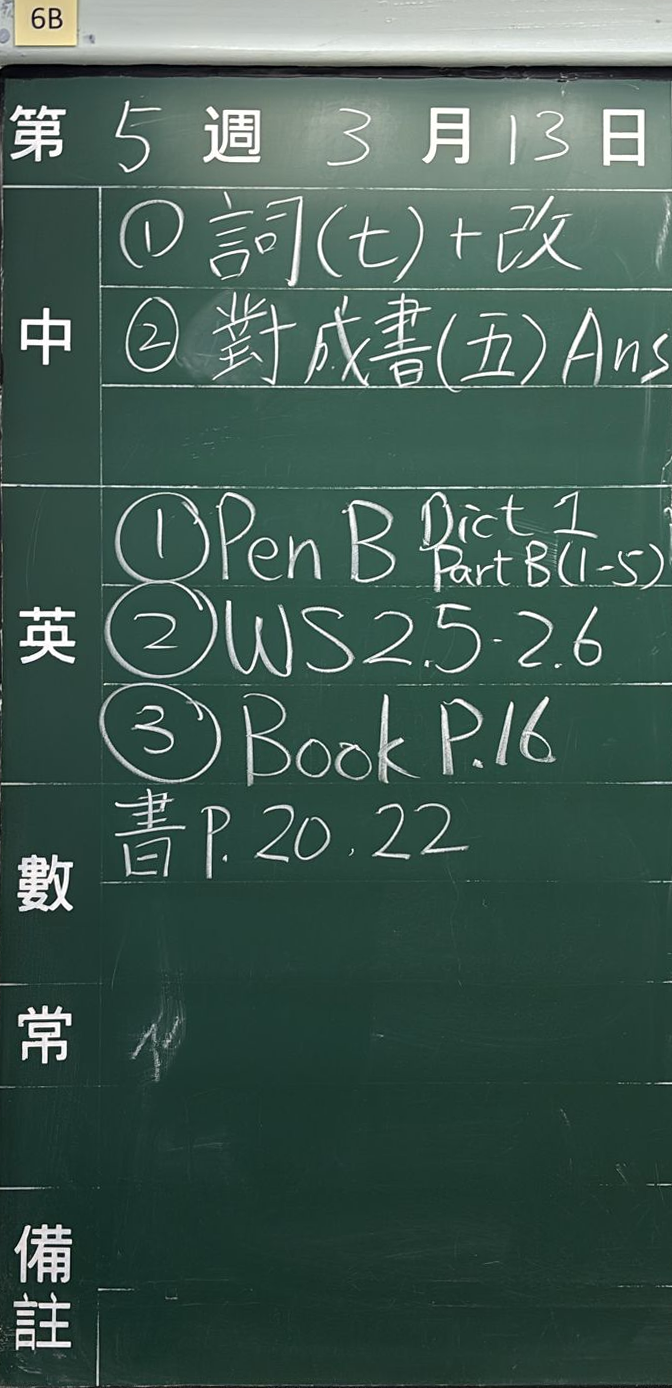 6B
第 5 週 3 月 13 日
中
① 詞(七)+改
② 對成書(五) Ans
英
① Pen B Dict 1
Part B(1-5)
② WS 2.5-2.6
③ Book P.16
數
書 P. 20, 22
常
備註